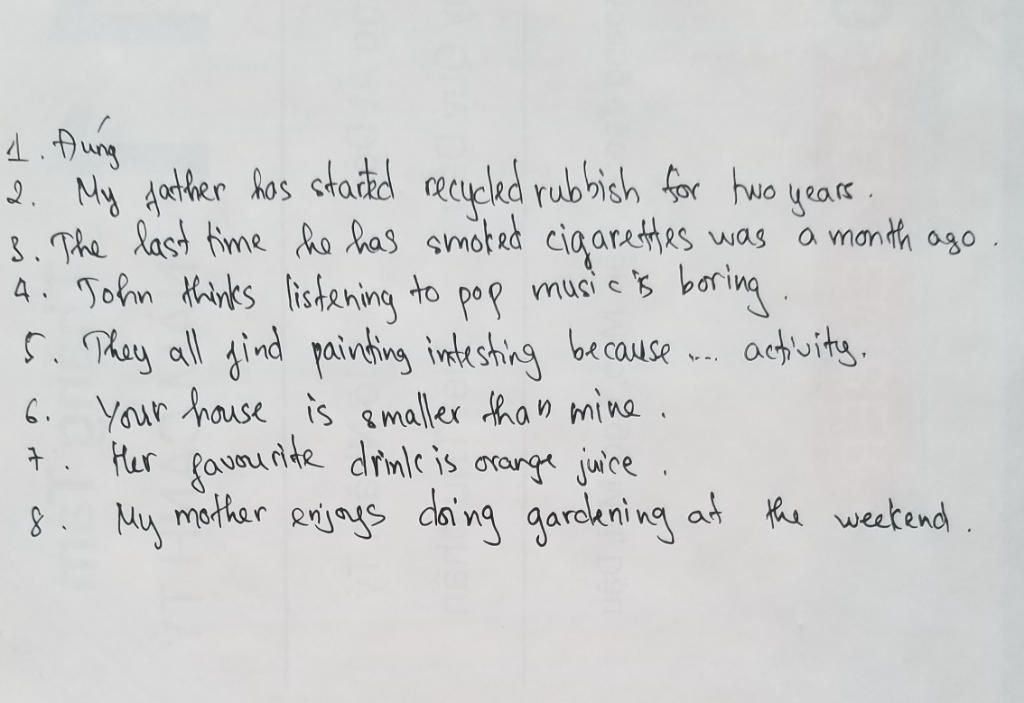 1. Đúng
2. My father has started recycled rubbish for two years.
3. The last time he has smoked cigarettes was a month ago.
4. John thinks listening to pop music is boring.
5. They all find painting intesting because .... activity.
6. Your house is smaller than mine.
7. Her favourite drink is orange juice.
8. My mother enjoys doing gardening at the weekend.